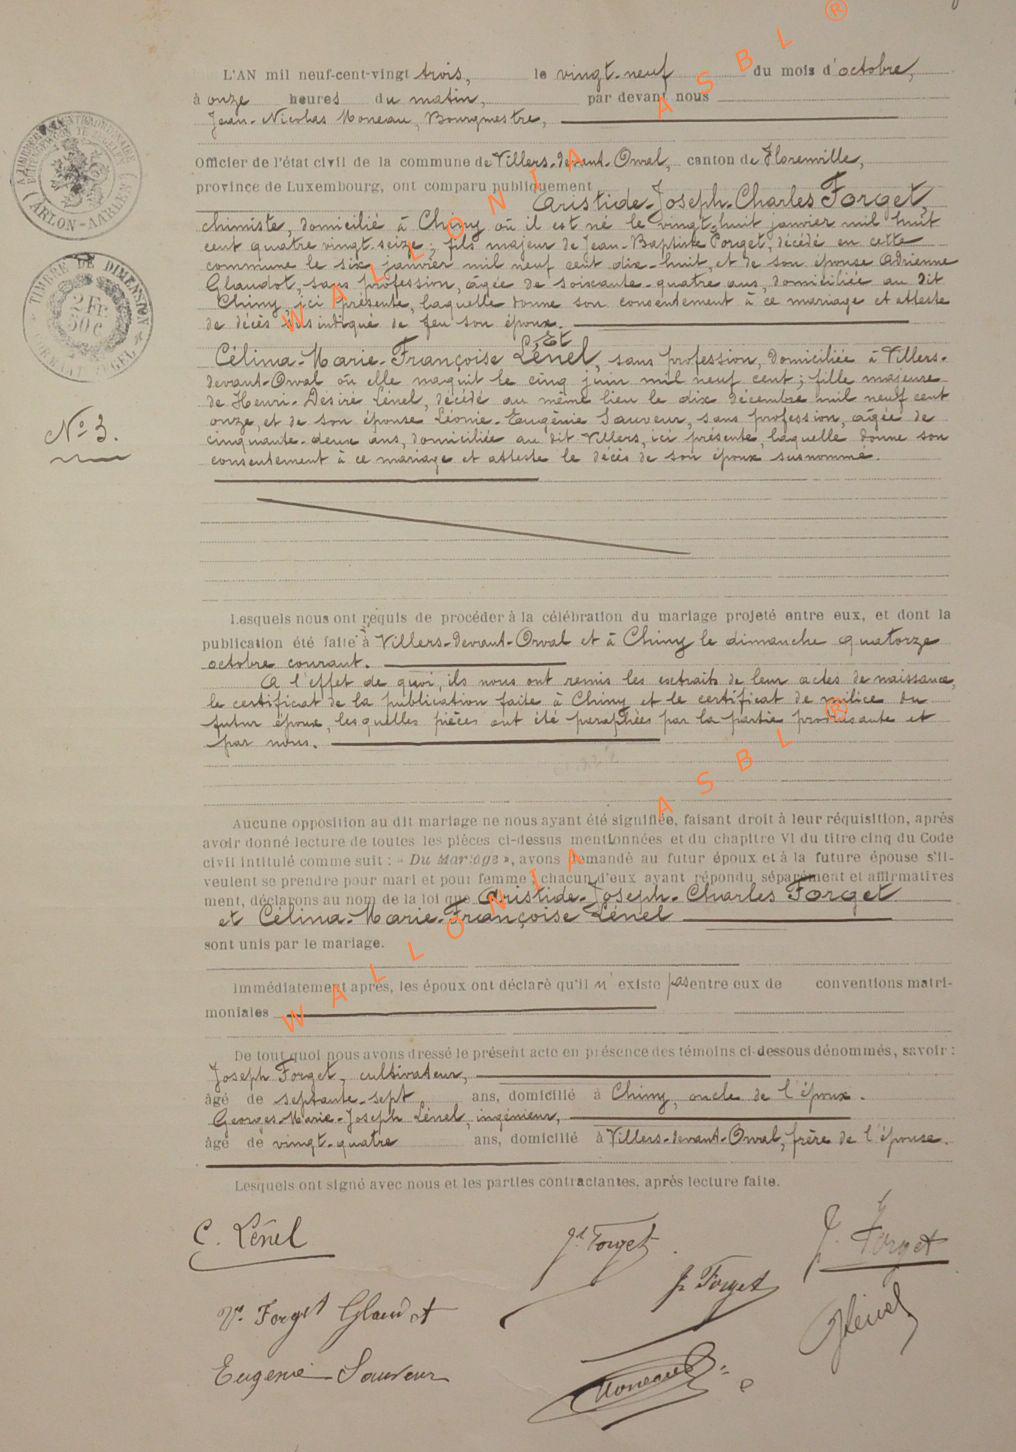 L'AN mil neuf-cent-vingt trois, le vingt-neuf du mois d'octobre,
à onze heures du matin, par devant nous
Jean-Nicolas Moneau, Bourgmestre,
Officier de l'état civil de la commune de Villers-devant-Orval, canton de Florenville,
province de Luxembourg, ont comparu publiquement
Aristide-Joseph-Charles Forget,
chimiste, domicilié à Chiny où il est né le vingt-huit janvier mil huit
cent quatre vingt-seize; fils majeur de Jean-Baptiste Forget, décédé en cette
commune le six janvier mil neuf cent dix-huit, et de son épouse Adrienne
Glaudot, sans profession, agée de soixante-quatre ans, domiciliée au dit
Chiny, ici présente, laquelle donne son consentement à ce mariage et atteste
de décès de feu son époux.
Et
Célina-Marie-Françoise Lénel, sans profession, domiciliée à Villers-
devant-Orval où elle naquit le cinq juin mil neuf cent; fille majeure
de Henri-Desiré Lénel, décédé au même lieu le dix décembre mil neuf cent
onze, et de son épouse Léonie-Eugénie Sauveur, sans profession, agée de
cinquante-deux ans, domiciliée au dit Villers, ici présente, laquelle donne son
consentement à ce mariage et atteste le décès de son époux susnommé.
N° 3.
Lesquels nous ont requis de procéder à la célébration du mariage projeté entre eux, et dont la
publication été faite à Villers-devant-Orval et à Chiny le dimanche quatorze
octobre courant.
A l'effet de quoi, ils nous ont remis les extraits de leur actes de naissance,
le certificat de la publication faite à Chiny et le certificat de milice du
futur époux, lesquelles pièces ont été paraphées par la partie produisante et
par nous.
Aucune opposition au dit mariage ne nous ayant été signifiée, faisant droit à leur réquisition, après
avoir donné lecture de toutes les pièces ci-dessus mentionnées et du chapitre VI du titre cinq du Code
civil intitulé comme suit : « Du Mariage », avons demandé au futur époux et à la future épouse s'il-
veulent se prendre pour mari et pour femme ; chacun d'eux ayant répondu séparément et affirmatives
ment, déclarons au nom de la loi que Aristide-Joseph-Charles Forget
et Célina-Marie-Françoise Lénel
sont unis par le mariage.
Immédiatement après, les époux ont déclaré qu'il n'existe pas entre eux de conventions matri-
moniales
De tout quoi nous avons dressé le présent acte en présence des témoins ci-dessous dénommés, savoir :
Joseph Forget, cultivateur,
âgé de septante-sept ans, domicilié à Chiny, oncle de l'époux.
Georges-Marie-Joseph Lénel, ingénieur,
âgé de vingt-quatre ans, domicilié à Villers-devant-Orval, frère de l'épouse.
Lesquels ont signé avec nous et les parties contractantes, après lecture faite.
C. Lénel
Forget
Forget
Forget
Ve Forget Glaudot
GLénel
Eugénie Sauveur
Moneau
TIMBRE DE DIMENSION
2 Fr. 50 C
ARLON-AARLEN
WALLONIA ASBL ®
WALLONIA ASBL ®